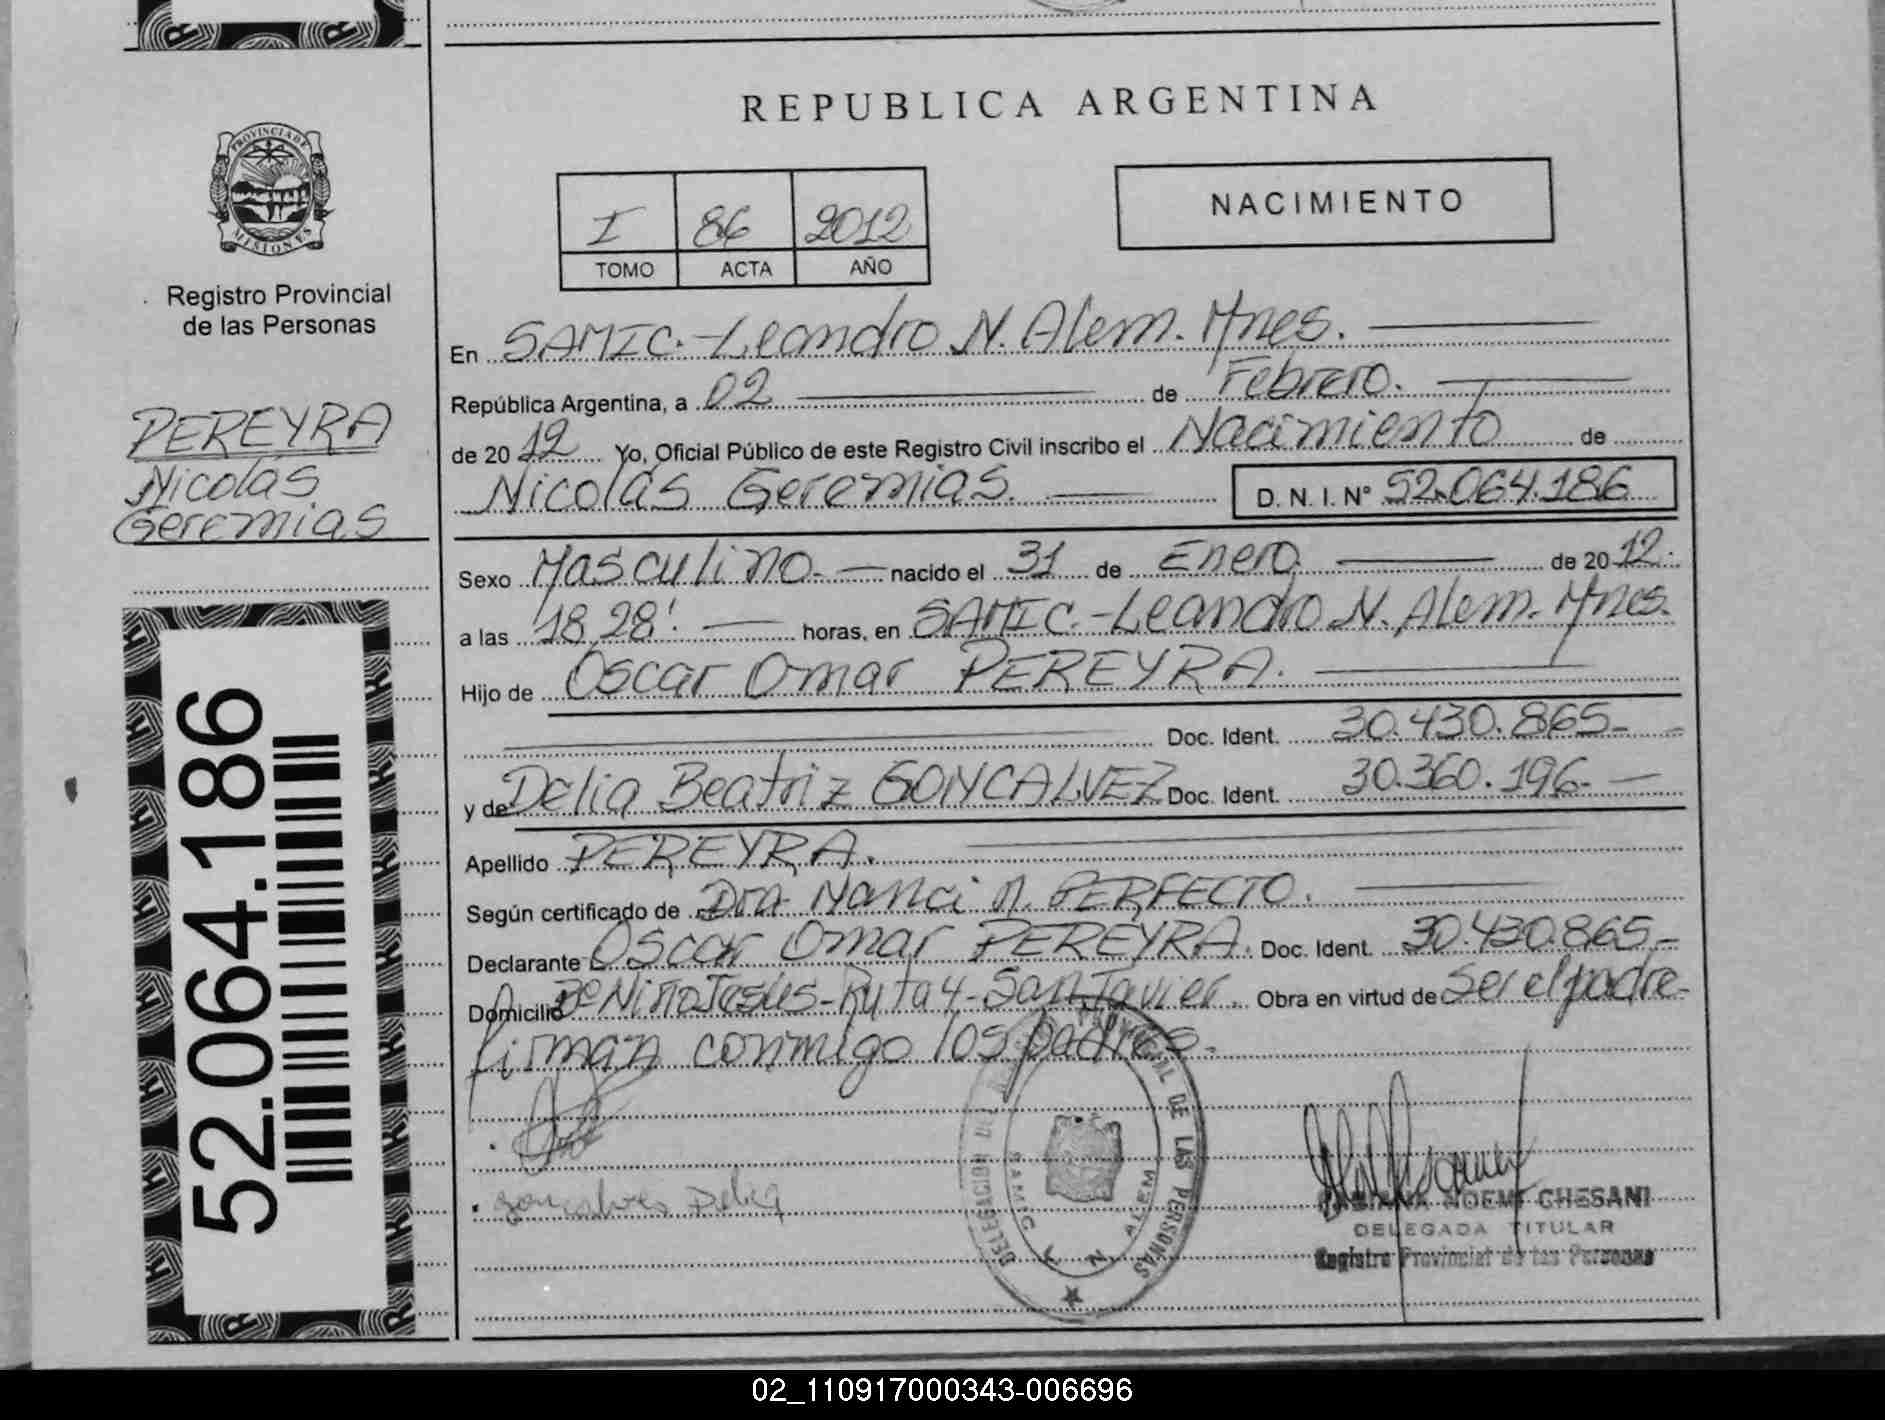 REPUBLICA ARGENTINA
PROVINCIA DE
MISIONES
Registro Provincial
de las Personas
PEREYRA
Nicolás
Geremias
52.064.186
I 86 2012
TOMO ACTA AÑO
NACIMIENTO
En SAMIC.-Leandro N. Alem. Mnes.
República Argentina, a 02 de Febrero.
de 20 12 Yo, Oficial Público de este Registro Civil inscribo el Nacimiento de
Nicolás Geremias. D. N. I. N° 52.064.186
Sexo Masculino. nacido el 31 de Enero. de 20 12.
a las 18,28' horas, en SAMIC.-Leandro N. Alem. Mnes.
Hijo de Oscar Omar PEREYRA.
Doc. Ident. 30.430.865-
y de Delia Beatriz GONCALVEZ Doc. Ident. 30.360.196-
Apellido PEREYRA.
Según certificado de Dra. Nanci M. PERFECTO.
Declarante Oscar Omar PEREYRA. Doc. Ident. 30.430.865-
Domicilio B° Niño Jesús-Ruta 4-San Javier. Obra en virtud de ser el padre-
firman conmigo los padres.
goncalves Delia
DELEGACION DEL REGISTRO PROVINCIAL DE LAS PERSONAS
SAMIC L N ALEM
NOEMI CHESANI
DELEGADA TITULAR
Registro Provincial de las Personas
02_110917000343-006696